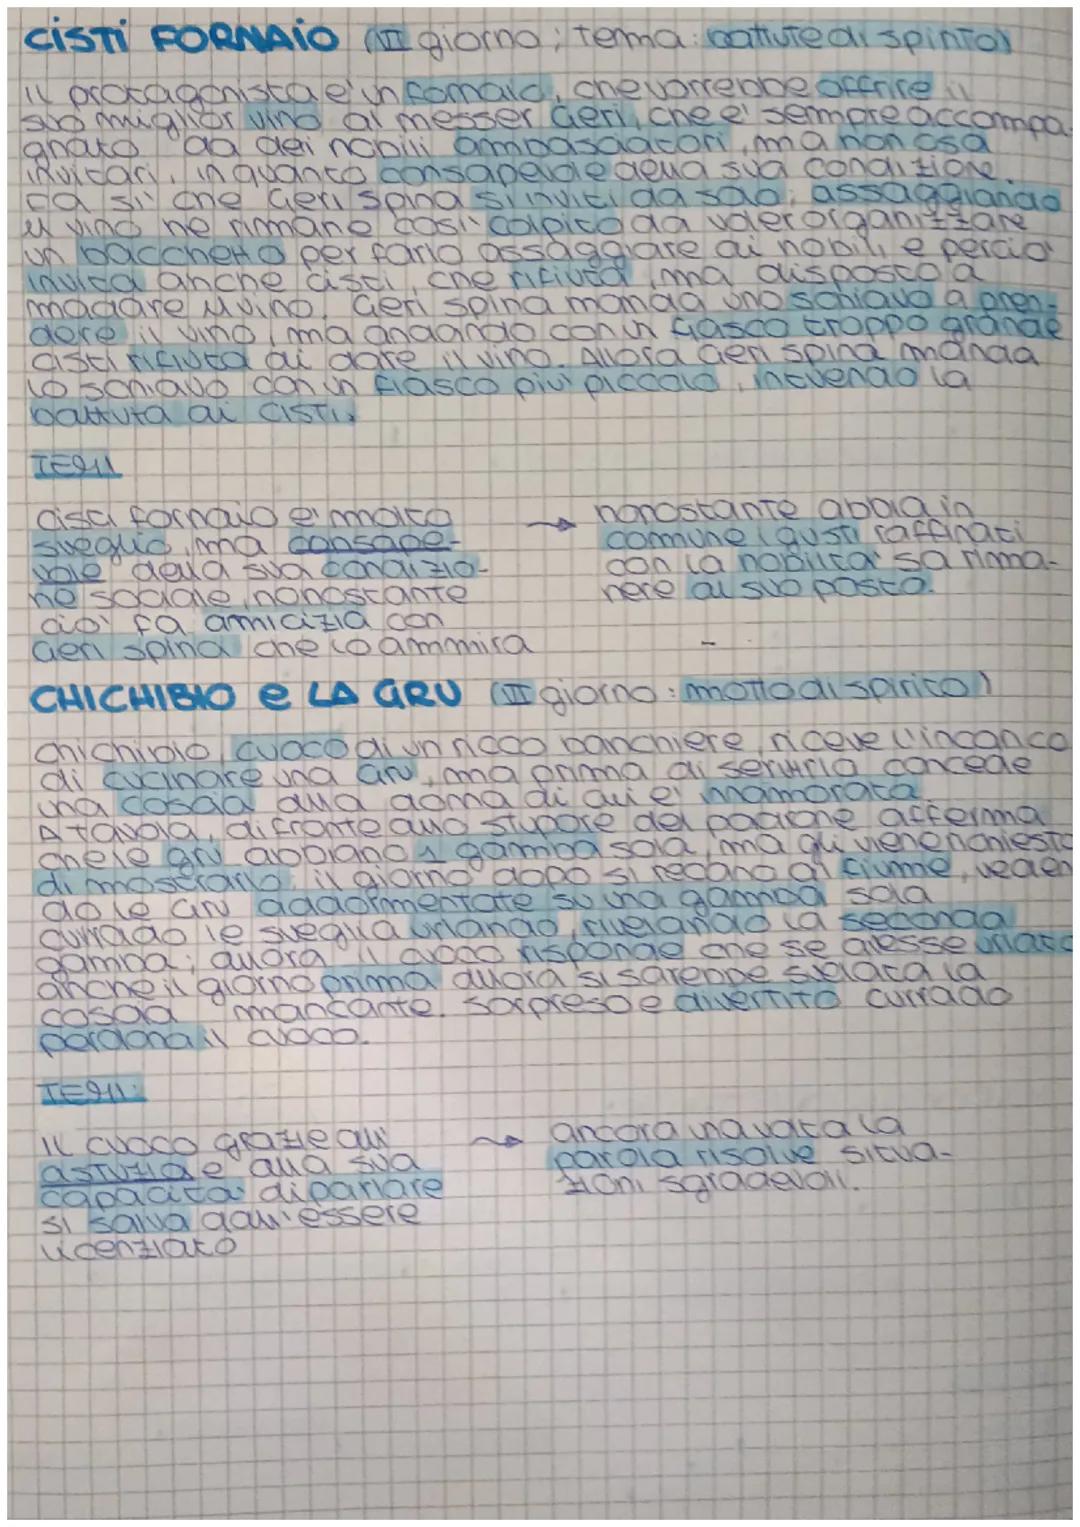 CISTI FORNAIO (VI giorno; tema: battute di spirito)
il protagonista e' un fornaio, che vorrebbe offrire il
suo miglior vino al messer Geri, che e' sempre accompa-
gnato da dei nobili ambasciatori, ma non osa
invitarli, in quanto consapevole della sua condizione.
Fa si' che Geri Spina si inviti da solo; assaggiando
il vino ne rimane cosi' colpito da voler organizzare
un banchetto per farlo assaggiare ai nobili e percio'
invita anche Cisti, che rifiuta, ma disposto a
mandare il vino. Geri Spina manda uno schiavo a pren-
dere il vino, ma andando con un fiasco troppo grande
Cisti rifiuta di dare il vino. Allora Geri Spina manda
lo schiavo con un fiasco piu' piccolo, intuendo la
battuta di Cisti.
TEMI
Cisti fornaio e' molto
sveglio, ma consape-
vole della sua condizio-
ne sociale, nonostante
cio' fa amicizia con
Geri Spina che lo ammira
→ nonostante abbia in
comune i gusti raffinati
con la nobilta' sa rima-
nere al suo posto.
CHICHIBIO e LA GRU (VI giorno: motto di spirito)
Chichibio, cuoco di un ricco banchiere, riceve l'incarico
di cucinare una gru, ma prima di servirla concede
una coscia alla donna di cui e' innamorato
A tavola, di fronte allo stupore del padrone afferma
che le gru abbiano 1 gamba sola, ma gli viene chiesto
di mostrarlo; il giorno dopo si recano al fiume, veden
do le gru addormentate su una gamba sola
Currado le sveglia urlando, rivelando la seconda
gamba; allora il cuoco risponde che se avesse urlato
anche il giorno prima allora si sarebbe svelata la
coscia mancante. Sorpreso e divertito Currado
perdona il cuoco.
TEMI:
Il cuoco grazie all'
astuzia e alla sua
capacita' di parlare
si salva dall'essere
licenziato
→ ancora una volta la
parola risolve situa-
zioni sgradevoli.